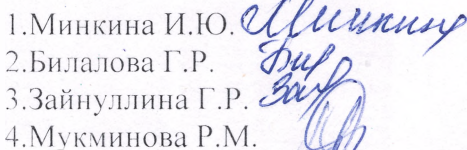 1.Минкина И.Ю. Минкину
2.Билалова Г.Р. Бил
3.Зайнуллина Г.Р. Зай
4.Мукминова Р.М.